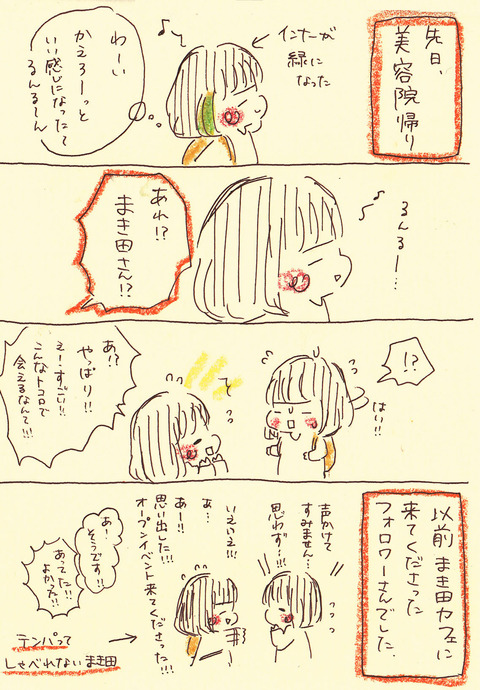 先日、
美容院帰り
インナーが
緑に
なった
わーい
かえろーっと
いい感じになったて
るんるーん
るんるー…
あれ!?
まき田さん!?
!?
はい!!
あ!?
やっぱり!!
えーすごい!!
こんなトコロで
会えるなんて!!!
以前 まき田カフェに
来てくださった
フォロワーさんでした。
声かけて
すみません…
思わず…!!!
いえいえ!!!
あ…
あー!!
思い出した!!!
オープンイベント来てくださった!!!
あー!
そうです!!
あってた!!
よかった!!
テンパって
しゃべれないまき田